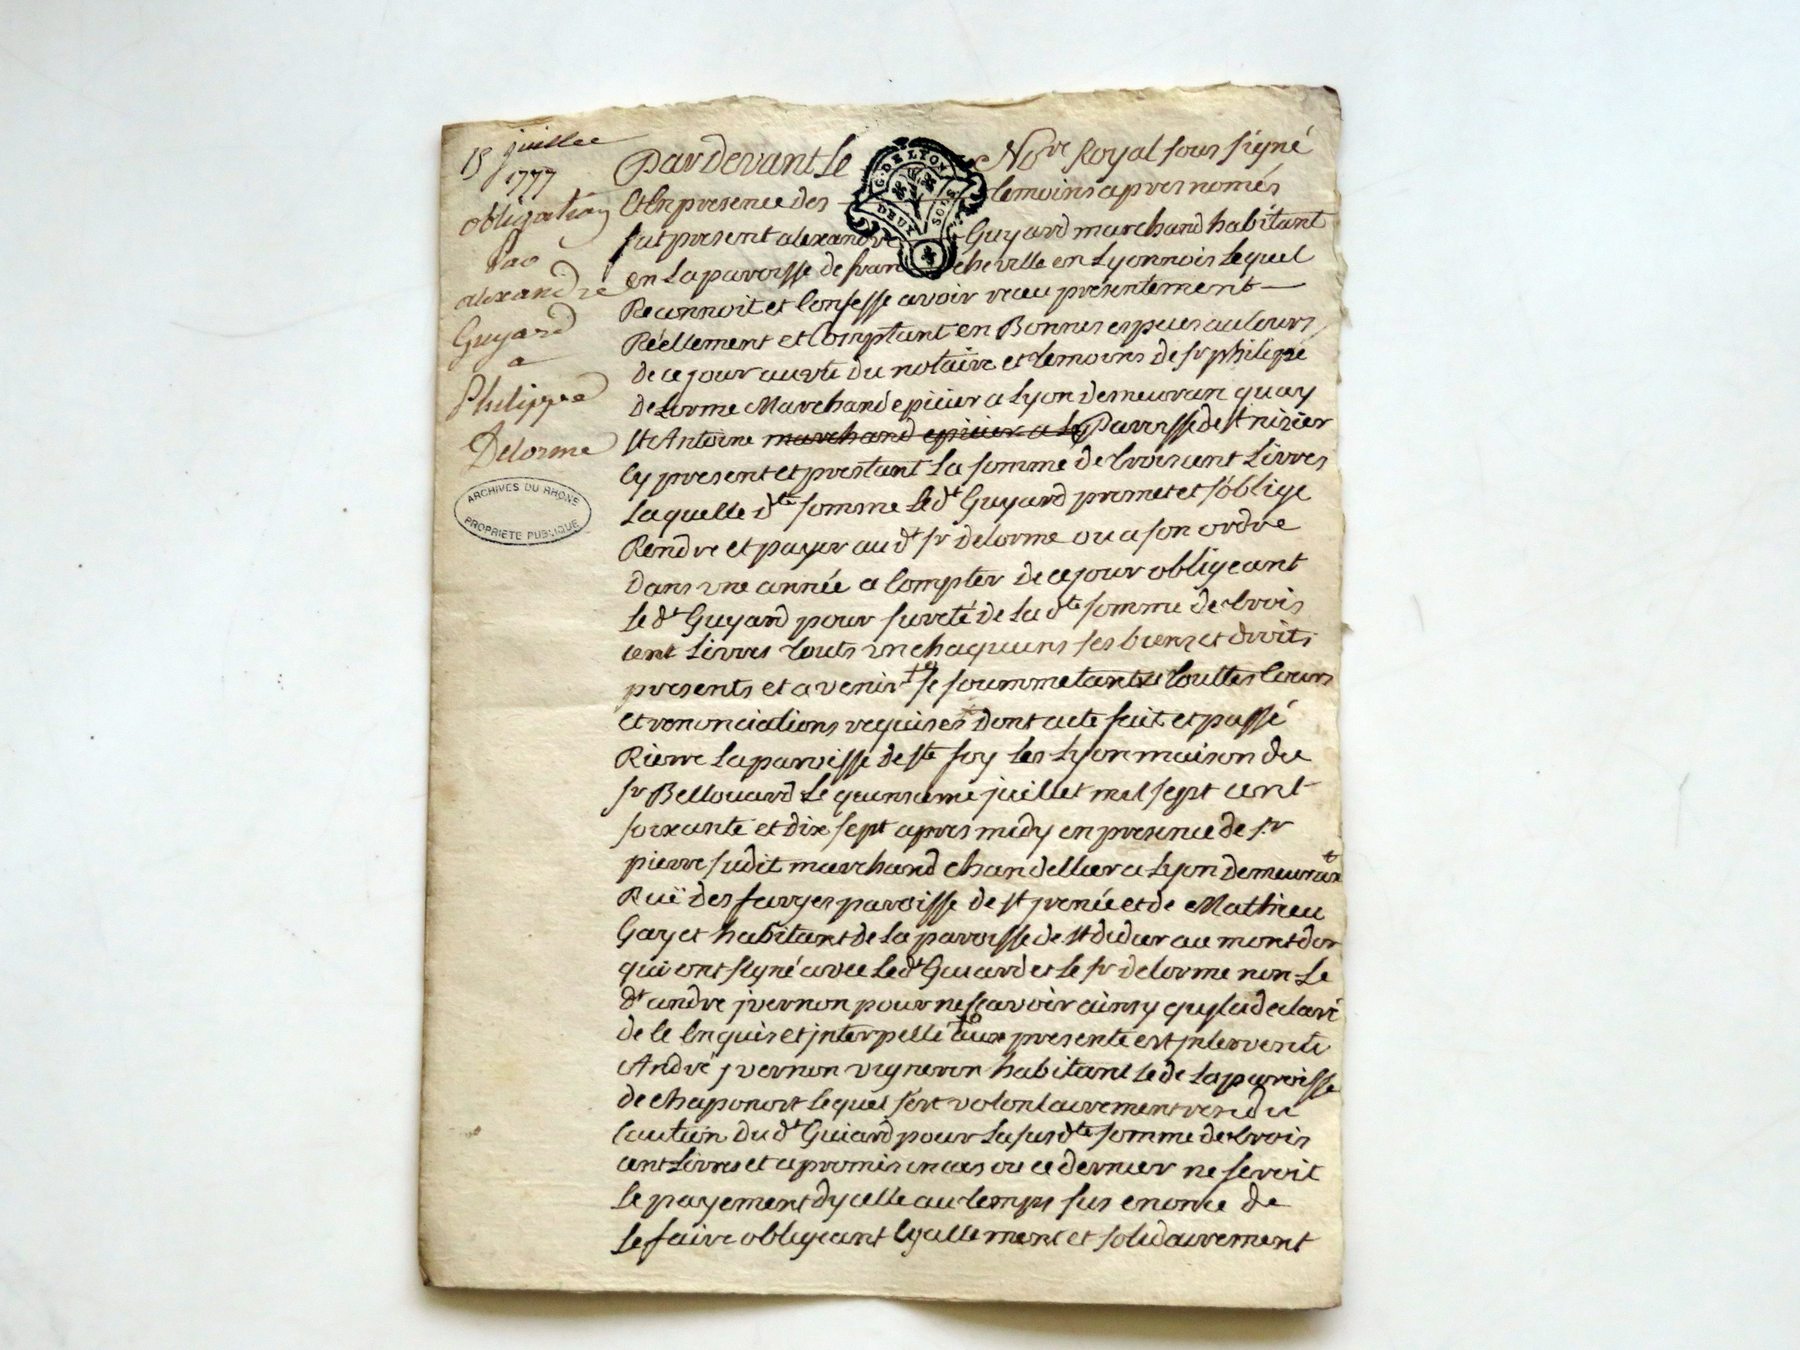 15 juillet
1777
obligation
par
alexandre
Guyard
a
Philippe
Delorme
ARCHIVES DU RHONE
PROPRIETE PUBLIQUE
G. DE LYON
DEUX SOLS
Pardevant le No.re Royal sous signé
Et en presence des temoins apres només
fut present alexandre Guyard marchand habitant
en La paroisse de francheville en Lyonnois Lequel
Reconnoit et Confesse avoir recu présentement
Réellement et Comptant en Bonnes especes au Cours
de ce jour au vu du notaire et temoins de sr philipe
deLorme Marchand epicier a Lyon demeuran quay
st Antoine marchand epicier a Ly Paroisse de st nizier
Cy present et prestant La somme de trois cent Livres
Laquelle dte somme Le dt Guyard promet et s'oblige
Rendre et payer au dt sr delorme ou a son ordre
dans une année a Compter de ce jour obligeant
Le dt Guyard pour sureté de La dte somme de trois
cent Livres touts un chaquuns ses biens et droits
presents et avenir se soummetant a touttes Cours
et renonciations requises dont acte fait et passé
Rierre La paroisse de ste foy Les Lyon maison du
sr Bellouard Le quinsieme juillet mil sept cent
soixante et dix sept apres midy en presence de sr
pierre sudit marchand chandellier a Lyon demeurant
Ruë des farges paroisse de st jrenée et de Mathieu
Gayet habitant de La paroisse de st didier au mont dor
qui ont signé avec Le dt Guiard et Le sr delorme non Le
dt andre jvernon pour ne scavoir ainsy quil a declaré
de ce Enquis et jnterpellé aux presente est jntervenu
André jvernon vigneron habitant de La paroisse
de chaponost Lequel s'est volontairement rendu
Caution du dt Guiard pour La susdte somme de trois
cent Livres et a promis en cas ou ce dernier ne feroit
Le payement dycelle au temps sus enonce de
Le faire obligeant Egallement et solidairement